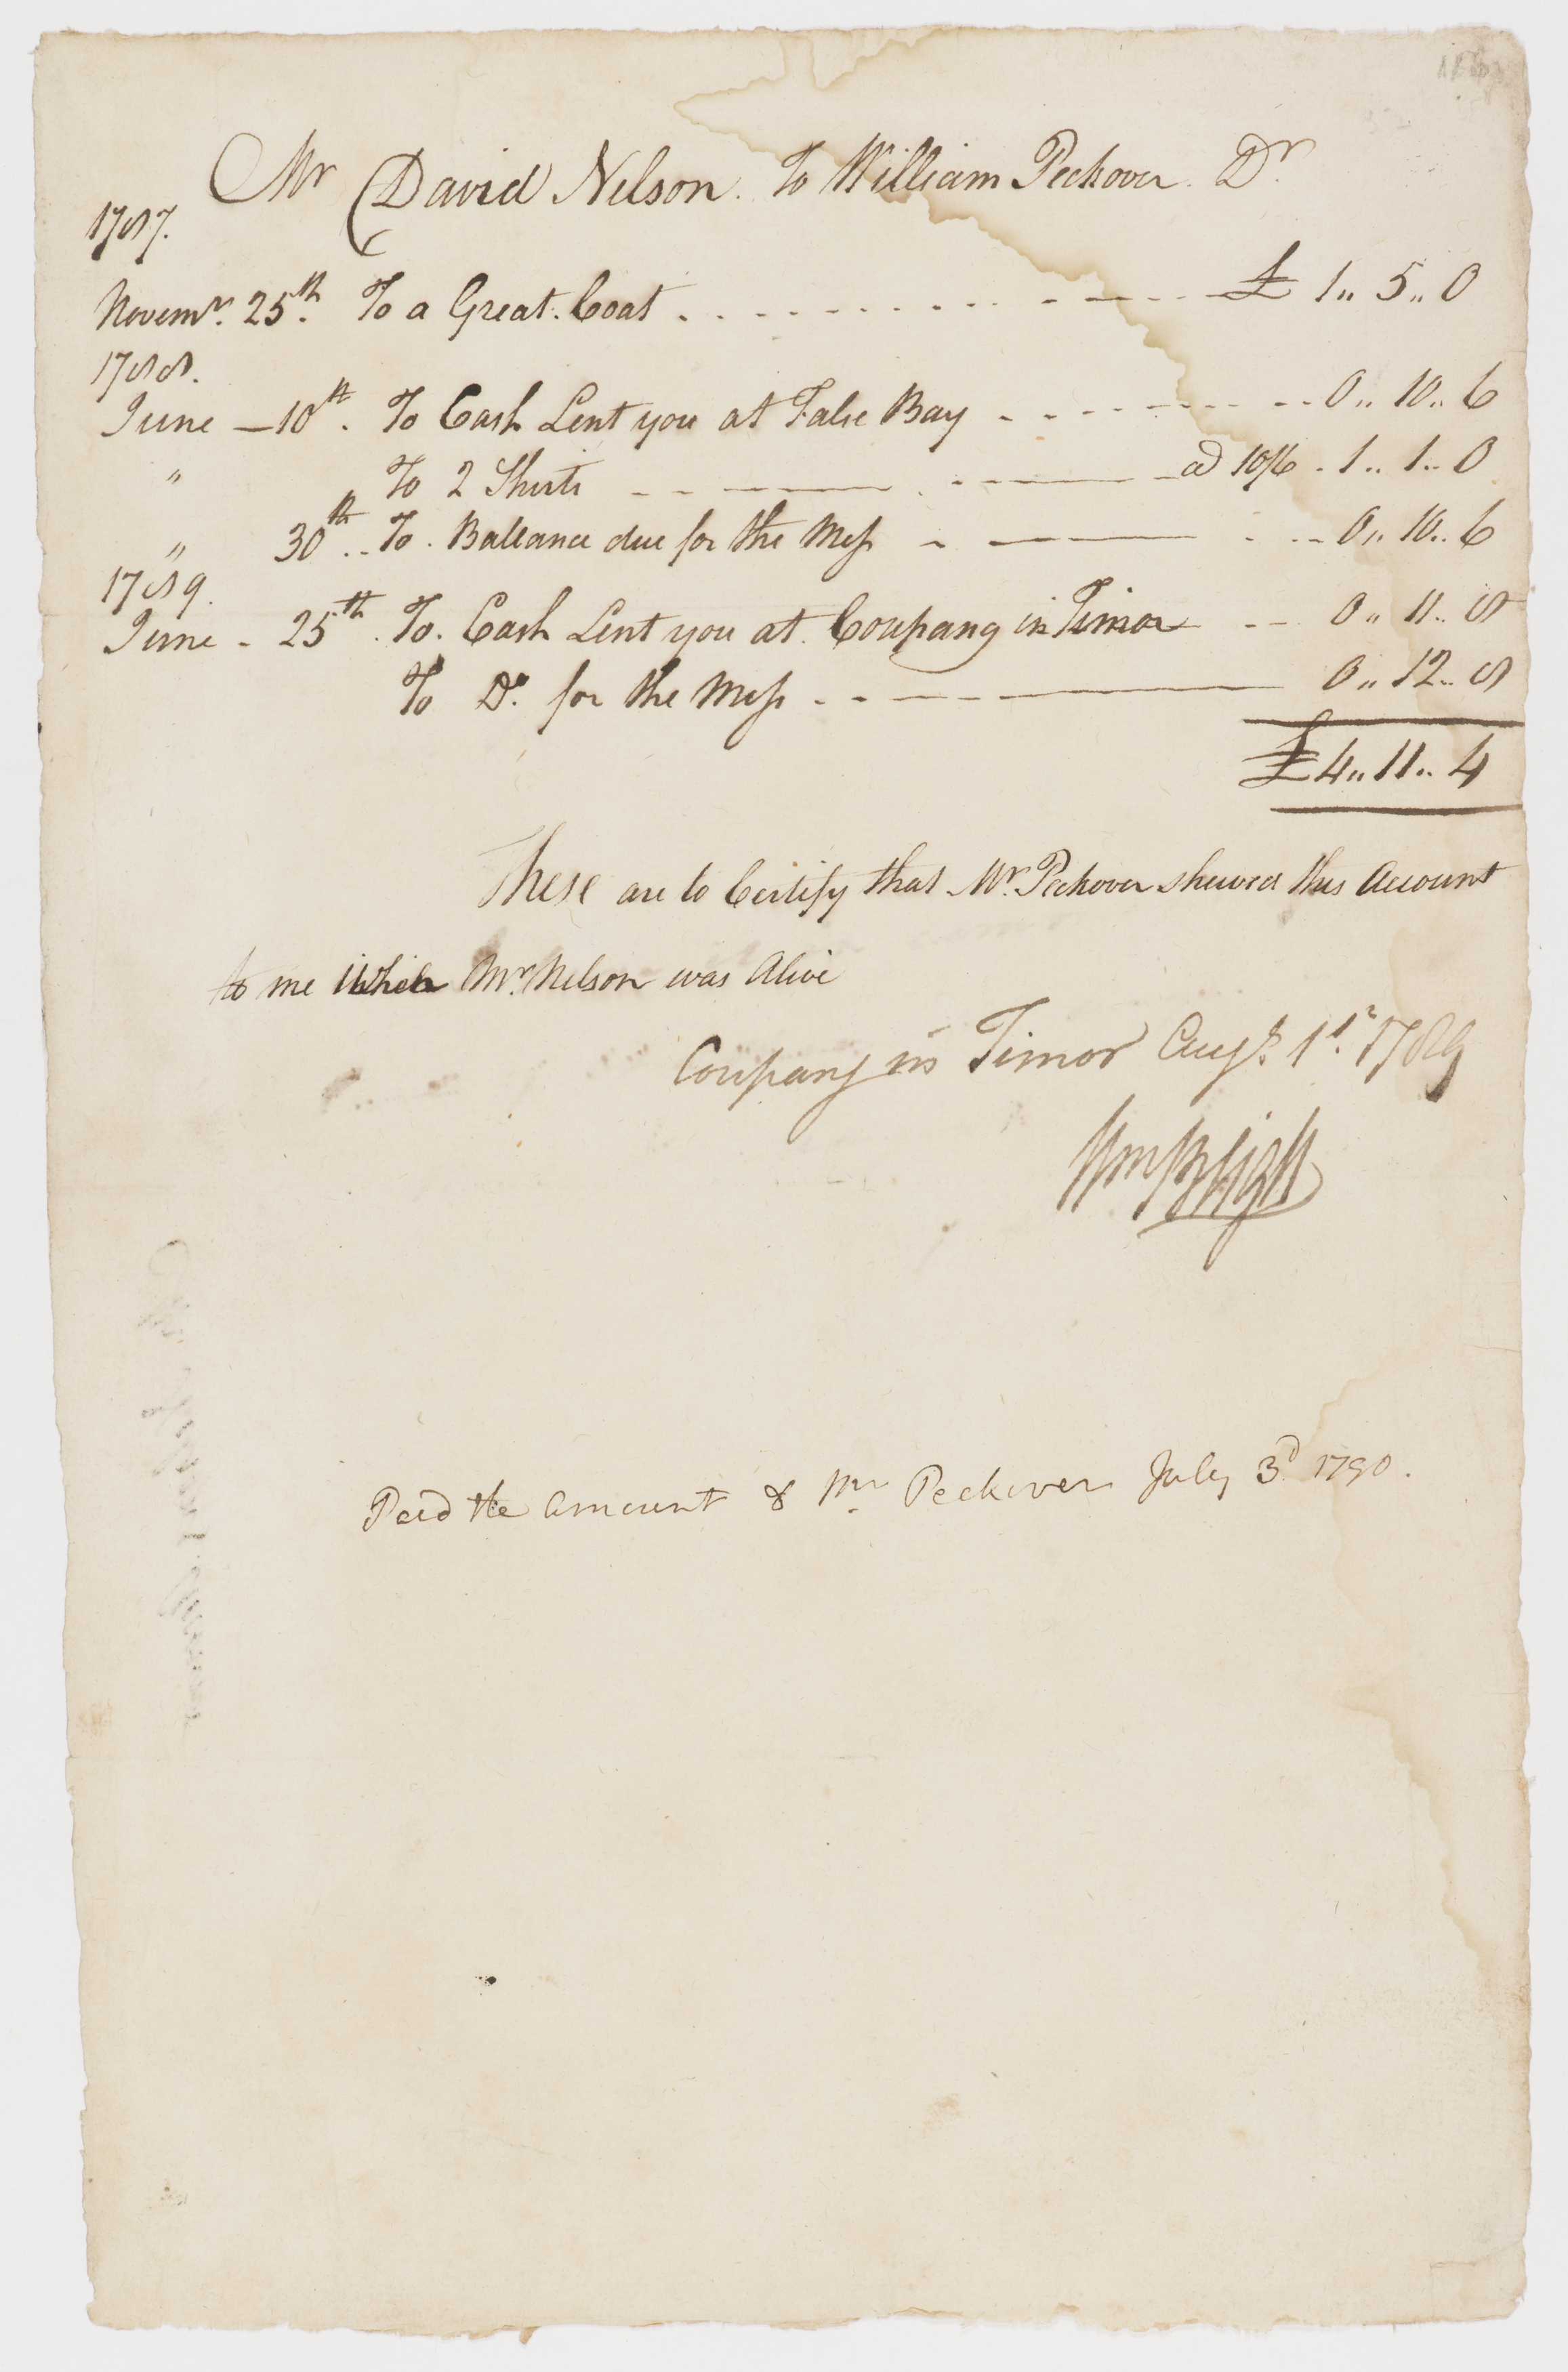 Mr David Nelson. To William Peckover Dr
1787.
Novemr. 25th. To a Great Coat . . . . . . . . . - - - £ 1,, 5,, 0
1788.
June — 10th. To Cash Lent you at False Bay - - - - - - - 0,, 10,, 6
" To 2 Shirts - - — - — a) 10/6 . 1,, 1,, 0
" 30th.. To. Ballance due for the Mess - — - - 0,, 10,, 6
1789.
June - 25th. To. Cash Lent you at Coupang in Timor - - 0,, 11,, 8
To Do. for the Mess - - - — 0,, 12,, 8
£ 4,, 11,, 4
These are to Certify that Mr. Peckover shewed this Account
to me while Mr. Nelson was Alive
Coupang in Timor Augt. 1st. 1789
Wm Bligh
Paid the amount to Mr Peckover July 3d 1790.